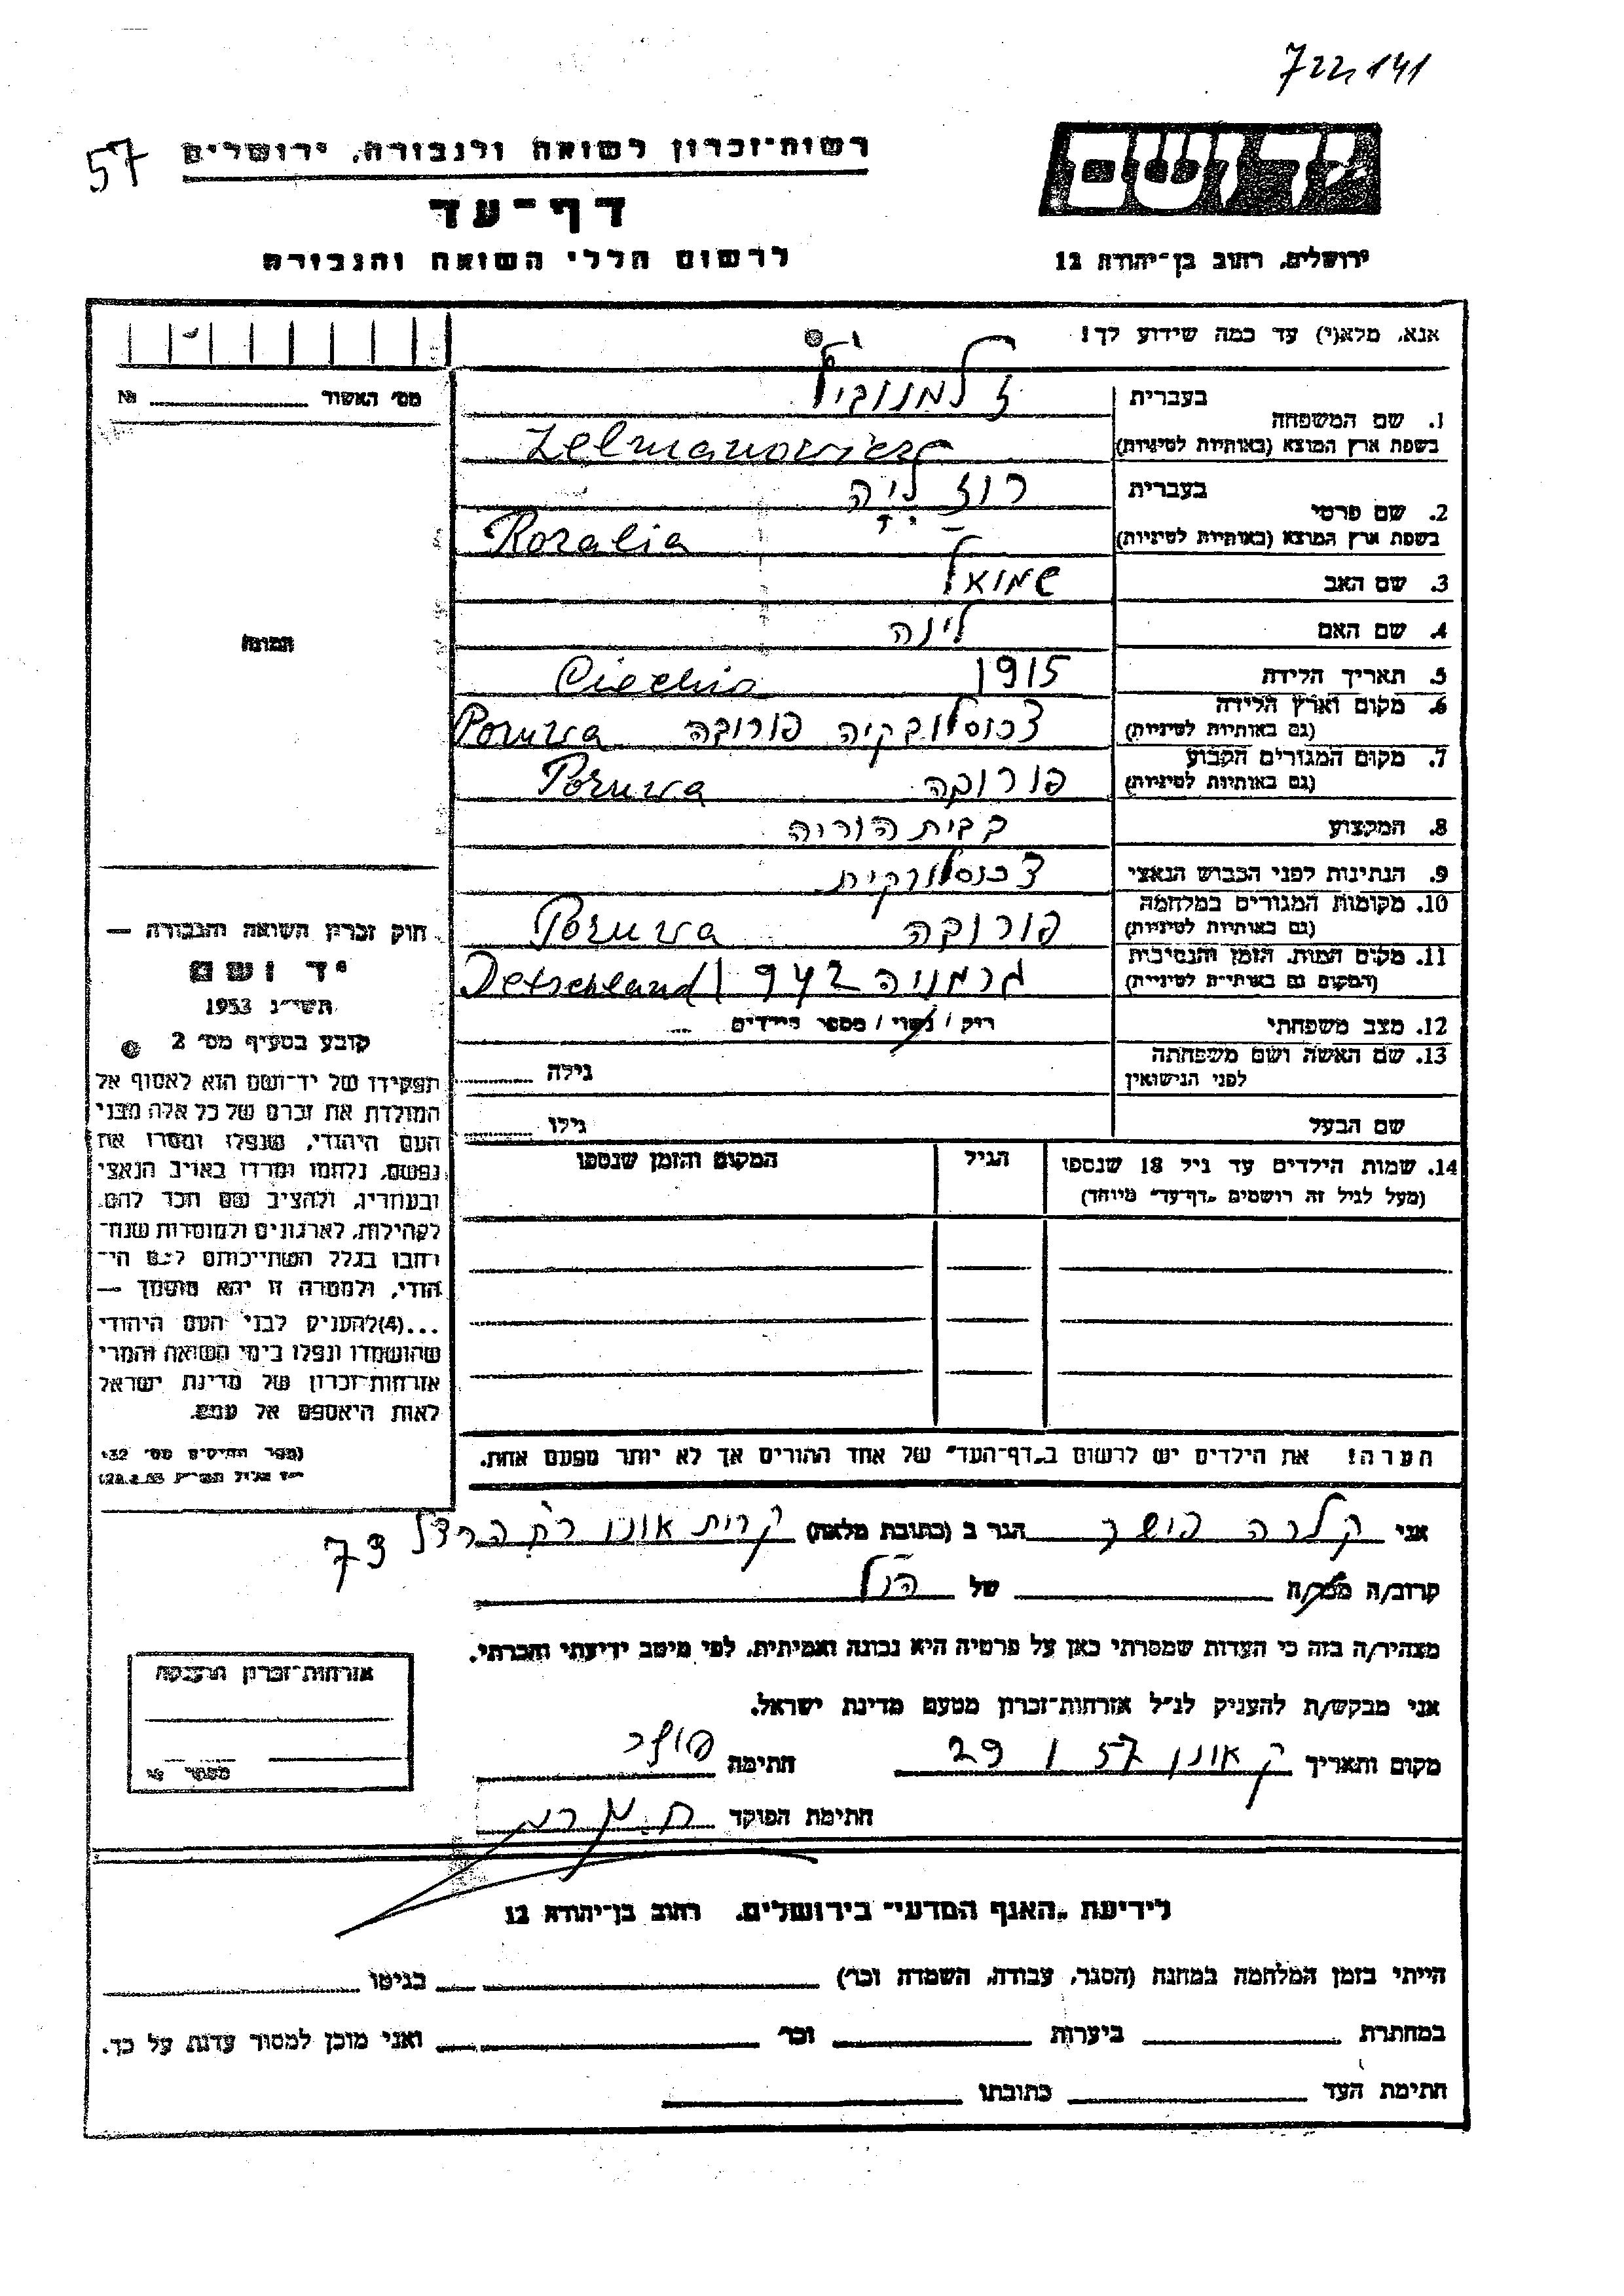 722,141
57
רשות־זכרון לשואה ולגבורה, ירושלים
ידושם
דף־עד
לרשום חללי השואה והגבורה
ירושלים, רחוב בן־יהודה 12
אנא, מלא(י) עד כמה שידוע לך!
מס׳ האשור № ........
1. שם המשפחה
בעברית
זלמנוביץ׳
בשפת ארץ המוצא (באותיות לטיניות)
Zelmanowicz
2. שם פרטי
בעברית
רוזליה
בשפת ארץ המוצא (באותיות לטיניות)
Rozalia
3. שם האב שמואל
4. שם האם לינה
5. תאריך הלידה 1915
6. מקום וארץ הלידה
(גם באותיות לטיניות)
צכוסלובקיה פורובה Poruwa
7. מקום המגורים הקבוע
(גם באותיות לטיניות)
פורובה Poruwa
8. המקצוע בבית הוריה
9. הנתינות לפני הכבוש הנאצי צכוסלובקית
10. מקומות המגורים במלחמה
(גם באותיות לטיניות)
פורובה Poruwa
11. מקום המות, הזמן והנסיבות
(המקום גם באותיות לטיניות)
גרמניה 1942 Detschland
12. מצב משפחתי רוק / נשוי / מספר הילדים ...
13. שם האשה ושם משפחתה
לפני הנישואין
גילה ........
שם הבעל גילו ........
14. שמות הילדים עד גיל 18 שנספו
(מעל לגיל זה רושמים „דף־עד״ מיוחד)
הגיל
המקום והזמן שנספו
הערה! את הילדים יש לרשום ב„דף־העד״ של אחד ההורים אך לא יותר מפעם אחת.
התמונה
חוק זכרון השואה והגבורה —
יד ושם
תשי״ג 1953
קובע בסעיף מס׳ 2
תפקידו של יד־ושם הוא לאסוף אל
המולדת את זכרם של כל אלה מבני
העם היהודי, שנפלו ומסרו את
נפשם, נלחמו ומרדו באויב הנאצי
ובעוזריו, ולהציב שם וזכר להם,
לקהילות, לארגונים ולמוסדות שנח־
רבו בגלל השתייכותם לעם הי־
הודי, ולמטרה זו יהא מוסמך —
...(4)להעניק לבני העם היהודי
שהושמדו ונפלו בימי השואה והמרי
אזרחות־זכרון של מדינת ישראל
לאות היאספם אל עמם.
(ספר החוקים מס׳ 132
אני קלרה פושר הגר ב (כתובת מלאה) קרית אונו רח׳ הרצל 73
קרוב/ה מכר/ה של הנ״ל
מצהיר/ה בזה כי העדות שמסרתי כאן על פרטיה היא נכונה ואמיתית, לפי מיטב ידיעתי והכרתי.
אני מבקש/ת להעניק לנ״ל אזרחות־זכרון מטעם מדינת ישראל.
מקום ותאריך ק אונו 29 1 57 חתימה
חתימת הפוקד
אזרחות־זכרון הוענקה
מספר №
לידיעת „האגף המדעי״ בירושלים, רחוב בן־יהודה 12
הייתי בזמן המלחמה במחנה (הסגר, עבודה, השמדה וכו׳) בגיטו
במחתרת ביערות וכו׳ ואני מוכן למסור עדות על כך.
חתימת העד כתובתו